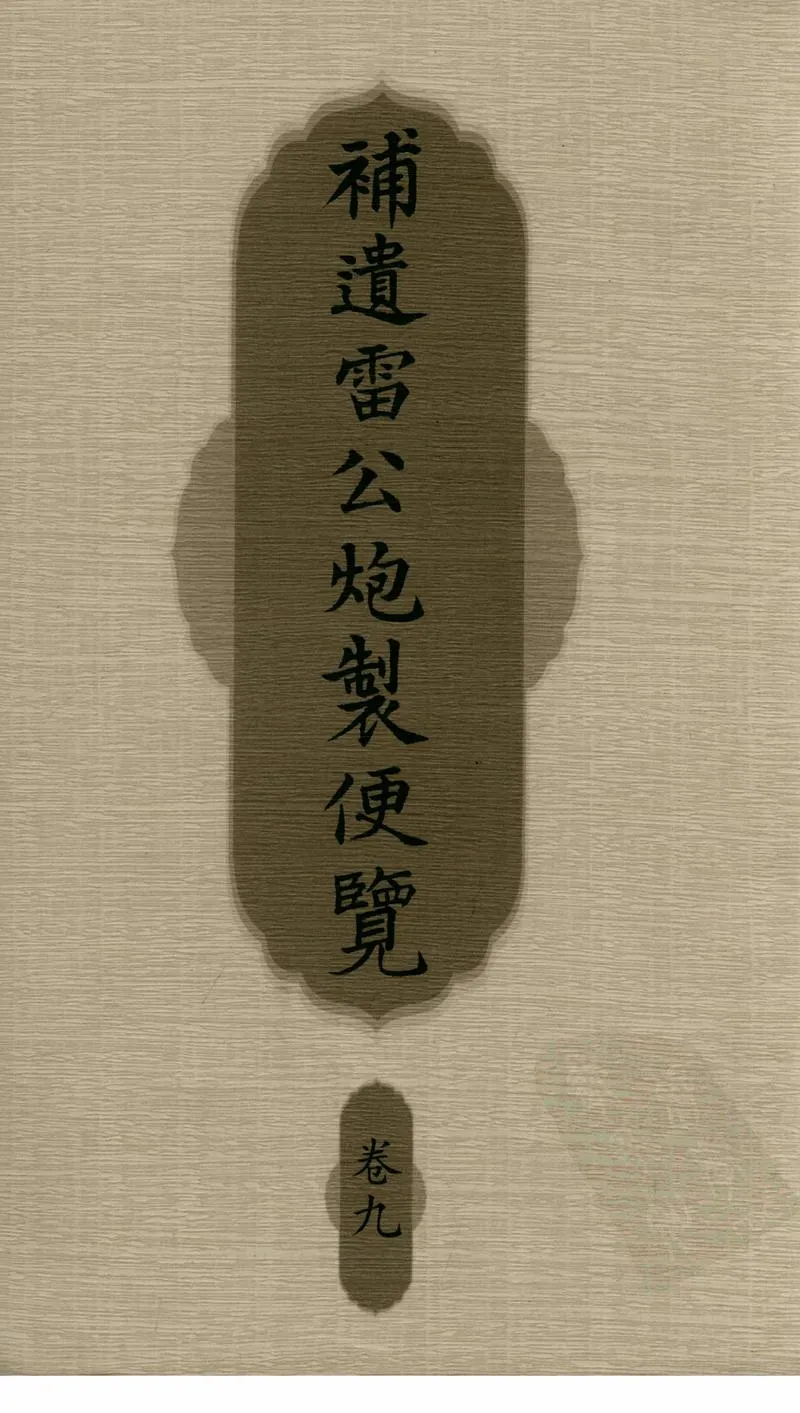 補遺雷公炮製便覽
卷九